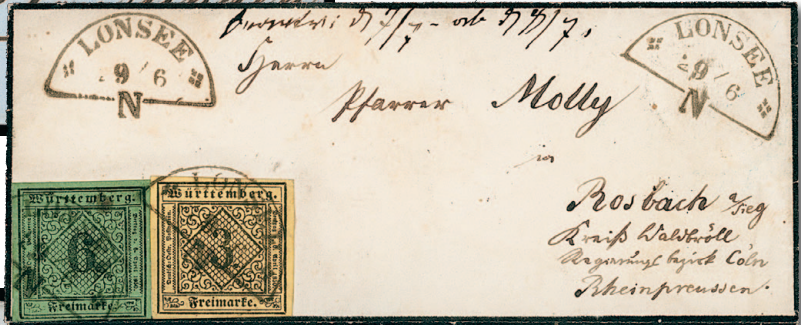 LONSEE
9/6
N
LONSEE
9/6
N
Herrn
Pfarrer Molly
in
Rosbach a/Sieg
Kreiß Waldbröll
Regierungsbezirk Cöln
Rheinpreussen.
Württemberg.
6
Freimarke.
Württemberg.
3
Freimarke.
LON